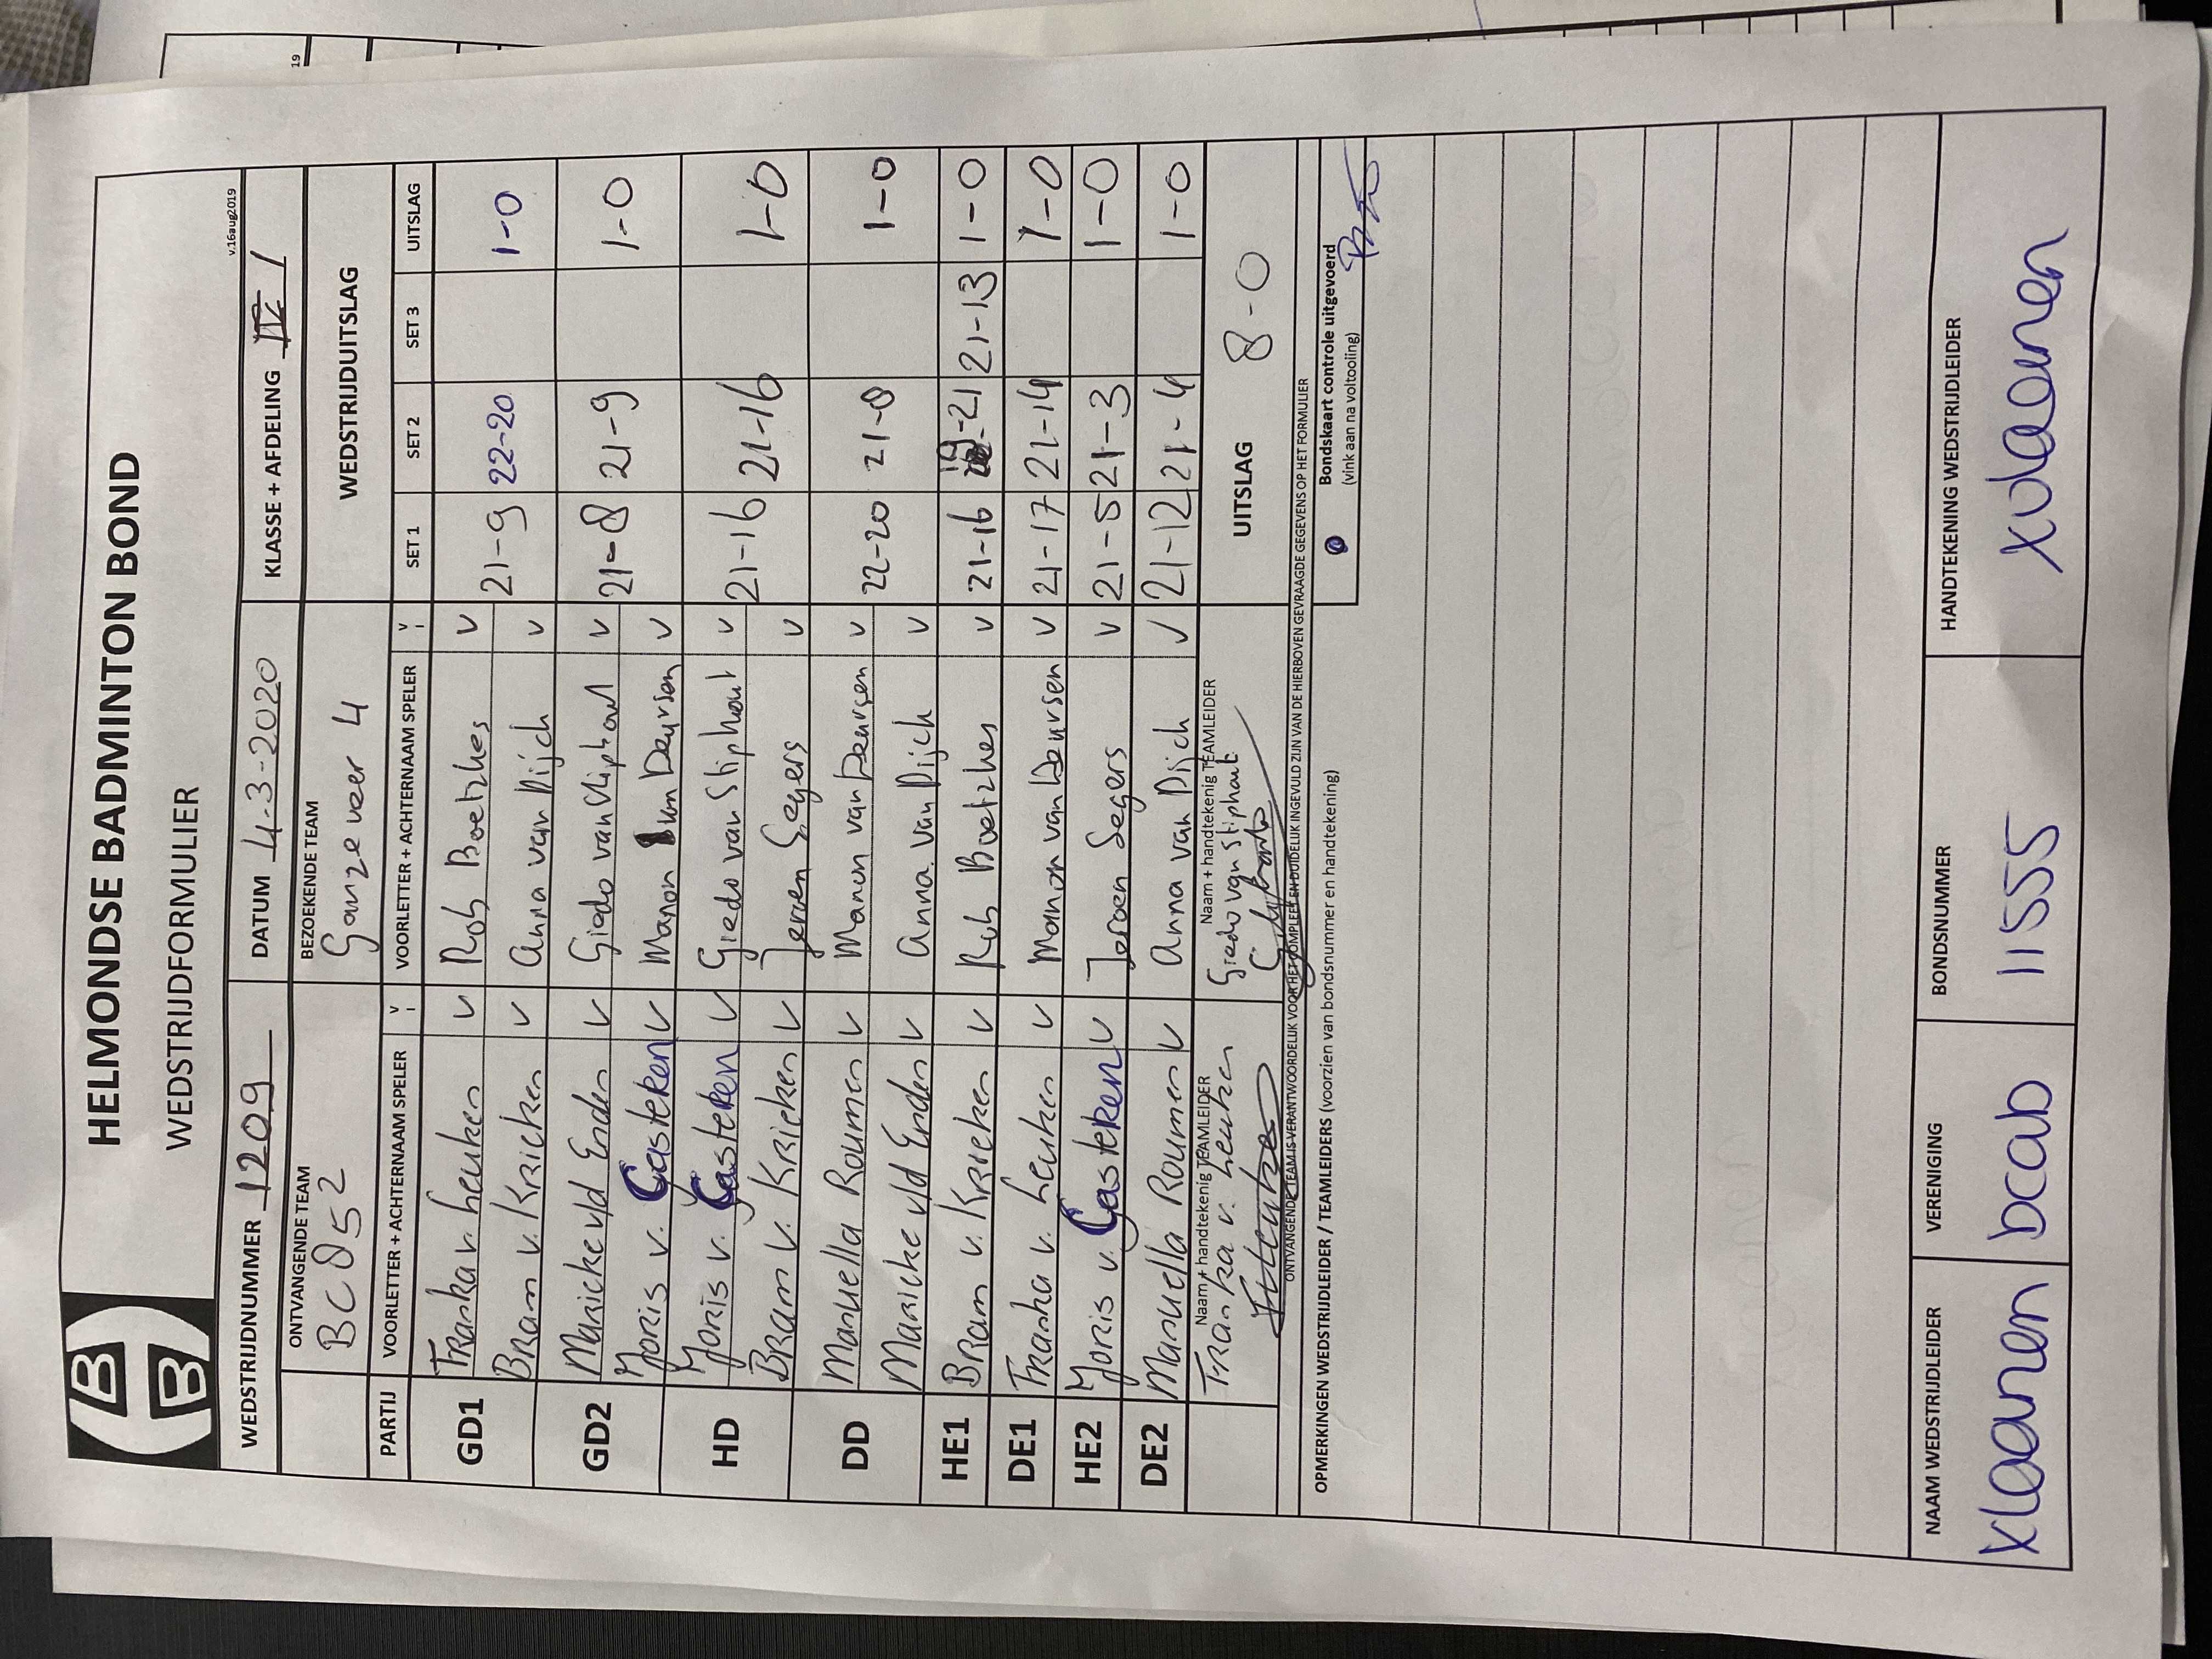 HELMONDSE BADMINTON BOND
WEDSTRIJDFORMULIER
v.16aug2019
WEDSTRIJDNUMMER 1209 DATUM 4-3-2020 KLASSE + AFDELING IV 1
ONTVANGENDE TEAM BEZOEKENDE TEAM WEDSTRIJDUITSLAG
BC 052 Ganzeveer 4
PARTIJ VOORLETTER + ACHTERNAAM SPELER V VOORLETTER + ACHTERNAAM SPELER V SET 1 SET 2 SET 3 UITSLAG
GD1 Franka v. Leuken V Rob Boetzkes V 21-9 22-20 1-0
Bram v. Kricken V Anna van Dijck V
GD2 Maricke v/d Enden V Giedo van Stiphout V 21-8 21-9 1-0
Joris v. Gasteken V Manon van Deursen V
HD Joris v. Gasteken V Giedo van Stiphout V 21-16 21-16 1-0
Bram v. Kricken V Jeroen Segers V
DD Manuella Roumen V Manon van Deursen V 22-20 21-8 1-0
Maricke v/d Enden V Anna van Dijck V
HE1 Bram v. Kricken V Rob Boetzkes V 21-16 19-21 21-13 1-0
DE1 Franka v. Leuken V Manon van Deursen V 21-17 21-14 1-0
HE2 Joris v. Gasteken V Jeroen Segers V 21-5 21-3 1-0
DE2 Manuella Roumen V Anna van Dijck V 21-12 21-4 1-0
Naam + handtekenig TEAMLEIDER Naam + handtekenig TEAMLEIDER
Franka v. Leuken Giedo van Stiphout UITSLAG 8-0
ONTVANGENDE TEAM IS VERANTWOORDELIJK VOOR HET COMPLEET EN DUIDELIJK INGEVULD ZIJN VAN DE HIERBOVEN GEVRAAGDE GEGEVENS OP HET FORMULIER
OPMERKINGEN WEDSTRIJDLEIDER / TEAMLEIDERS (voorzien van bondsnummer en handtekening)
Bondskaart controle uitgevoerd
(vink aan na voltooling)
NAAM WEDSTRIJDLEIDER VERENIGING BONDSNUMMER HANDTEKENING WEDSTRIJDLEIDER
Xlaanen bcab 11555 xvlaanen
19